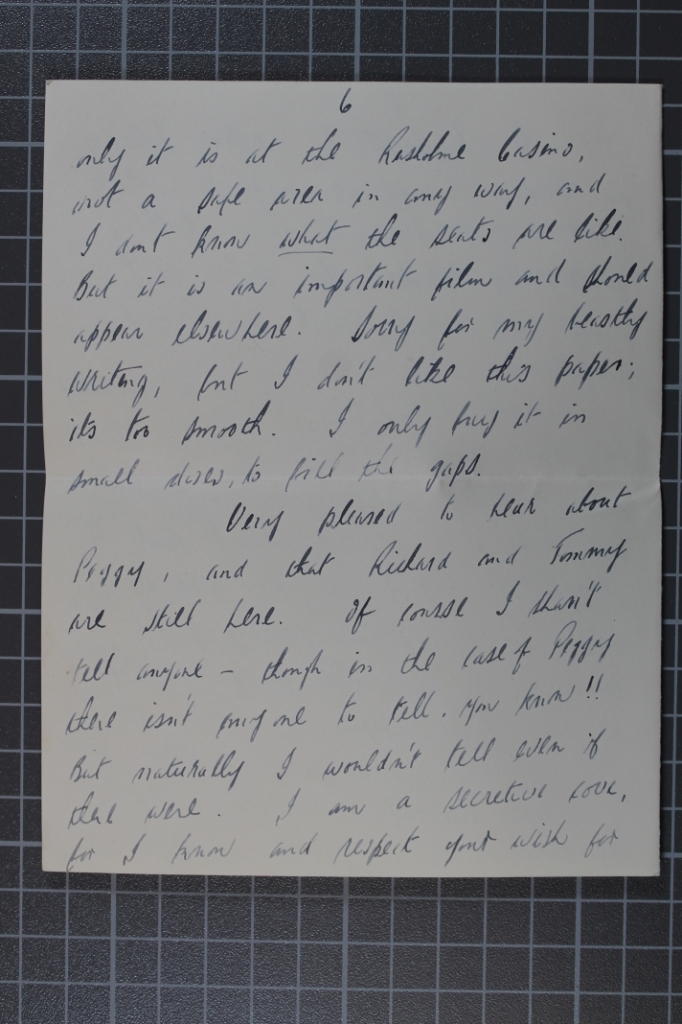 6
only it is at the Rusholme Casino,
not a safe area in any way, and
I don't know what the seats are like.
But it is an important film and should
appear elsewhere. Sorry for my beastly
writing, but I don't like this paper;
its too smooth. I only buy it in
small doses, to fill the gaps.
Very pleased to hear about
Peggy, and that Richard and Tommy
are still here. Of course I shan't
tell anyone – though in the case of Peggy
there isn't anyone to tell, you know!!
But naturally I wouldn't tell even if
there were. I am a secretive cove,
for I know and respect your wish for